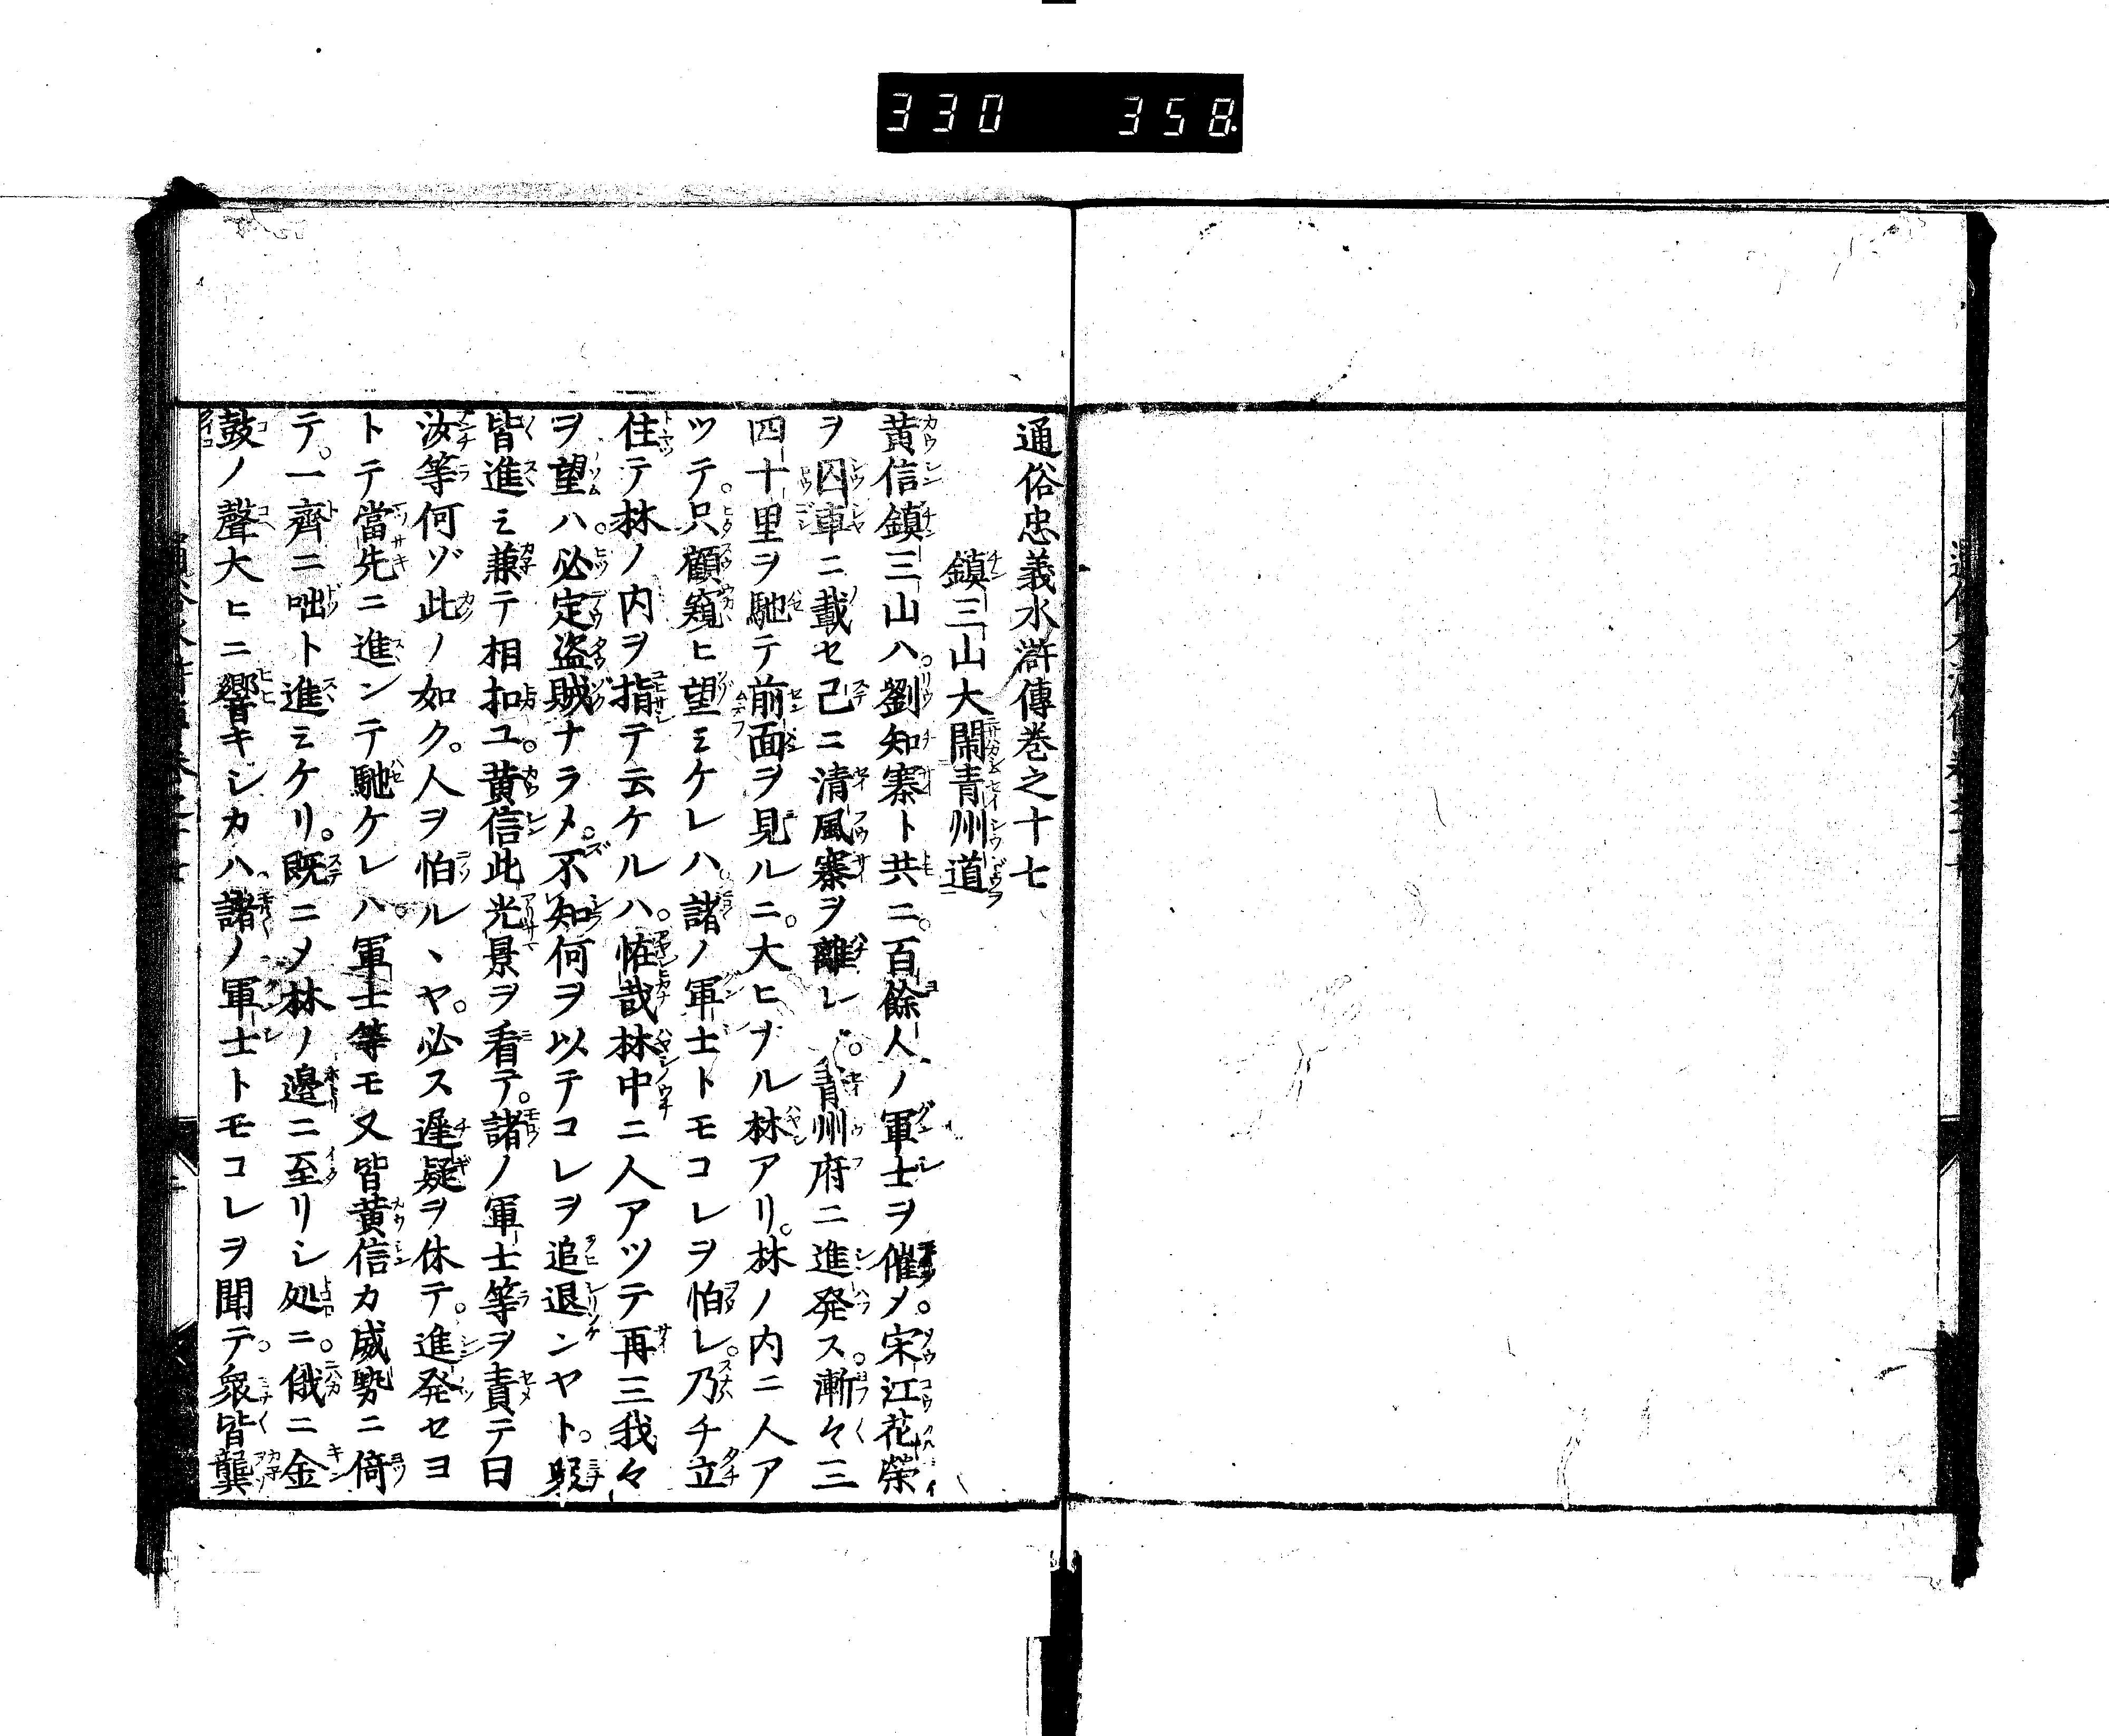 330 358
通俗忠義水滸傳巻之十七
鎮三山大閙青州道
黄信鎮三山ハ。劉知寨ト共ニ。百餘人ノ軍士ヲ催メ。宋江花榮
ヲ囚車ニ載セ已ニ清風寨ヲ離レ。青州府ニ進発ス。漸々三
四十里ヲ馳テ前面ヲ見ルニ。大ヒナル林アリ。林ノ内ニ人ア
ツテ。只顧窺ヒ望ミケレハ。諸ノ軍士トモコレヲ怕レ。乃チ立
住テ林ノ内ヲ指テ云ケルハ。恠哉林中ニ人アツテ再三我々
ヲ望ハ。必定盗賊ナラメ。不知何ヲ以テコレヲ追退ンヤト。
皆進ミ兼テ相扣ユ。黄信此光景ヲ看テ。諸ノ軍士等ヲ責テ曰
汝等何ゾ此ノ如ク。人ヲ怕ルヽヤ。必ス遲疑ヲ休テ。進発セヨ
トテ當先ニ進ンテ馳ケレハ。軍士等モ又皆黄信カ威勢ニ倚
テ。一齊ニ咄ト進ミケリ。既ニメ林ノ邊ニ至リシ処ニ。俄ニ金
鼓ノ聲大ヒニ響キシカハ。諸ノ軍士トモコレヲ聞テ。衆皆龔